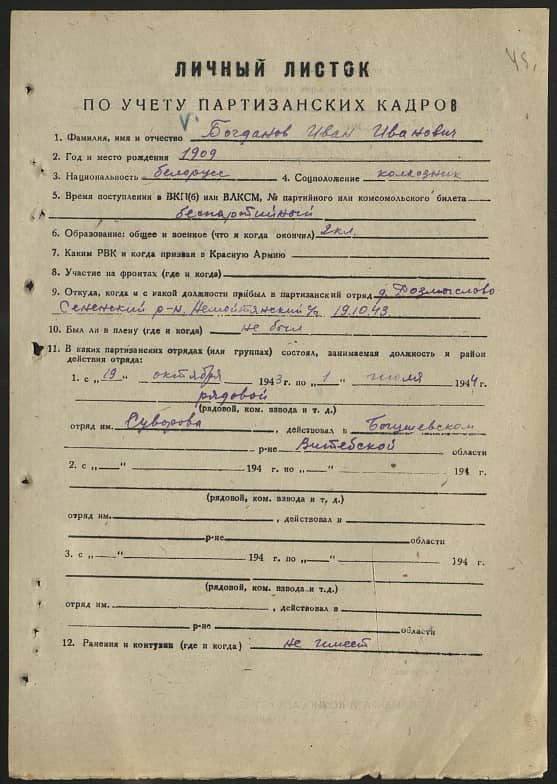 48.
ЛИЧНЫЙ ЛИСТОК
ПО УЧЕТУ ПАРТИЗАНСКИХ КАДРОВ
V
1. Фамилия, имя и отчество Богданов Иван Иванович
2. Год и место рождения 1909
3. Национальность белорусс 4. Соцположение колхозник
5. Время поступления в ВКП(б) или ВЛКСМ, № партийного или комсомольского билета
беспартийный
6. Образование: общее и военное (что и когда окончил) 2 кл.
7. Каким РВК и когда призван в Красную Армию
8. Участие на фронтах (где и когда)
9. Откуда, когда и с какой должности прибыл в партизанский отряд д. Розмыслово
Сененский р-н, Немойтянский с/с 19.10.43
10. Был ли в плену (где и когда) не был
11. В каких партизанских отрядах (или группах) состоял, занимаемая должность и район
действия отряда:
1. с „19“ октября 1943 г. по „1“ июля 1944 г.
рядовой
(рядовой, ком. взвода и т. д.)
отряд им. Суворова, действовал в Богушевском
р-не Витебской области
2. с „—“ 194 г. по „—“ 194 г.
(рядовой, ком. взвода и т, д.)
отряд им. , действовал и
р-не области
3. с „—“ 194 г. по „—“ 194 г.
(рядовой, ком. взвода и т.д.)
отряд им. , действовал в
р-не области
12. Ранения и контузии (где и когда) не имеет